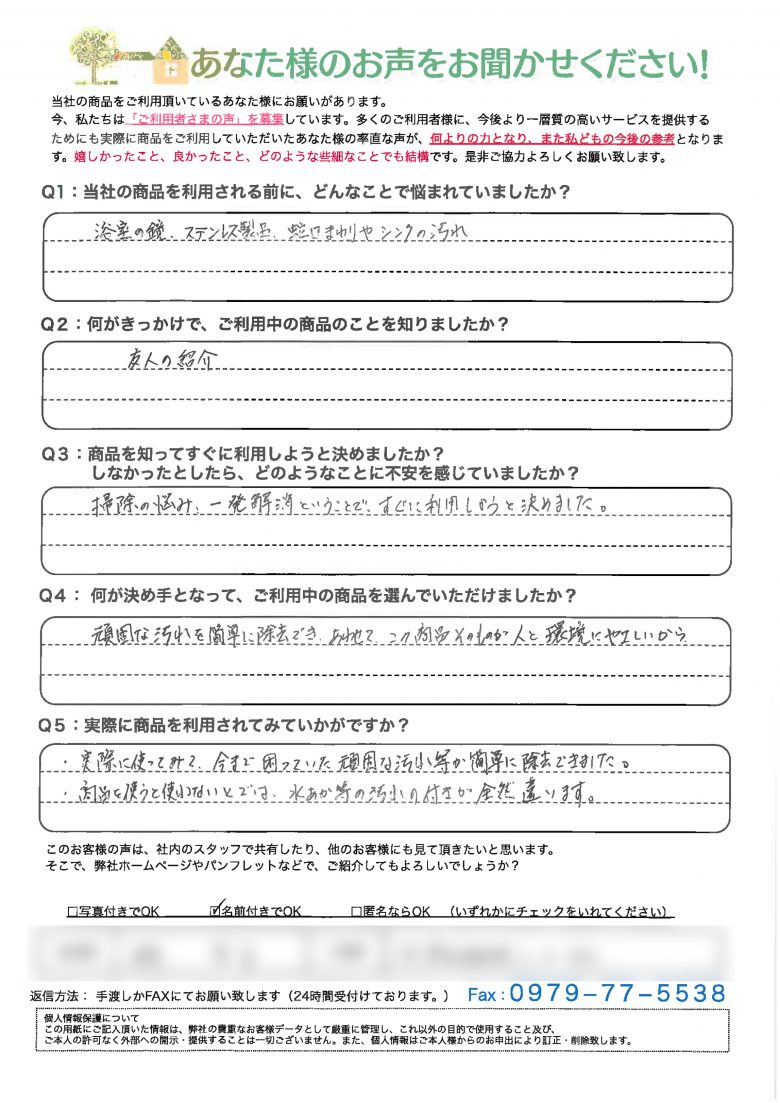 あなた様のお声をお聞かせください!
当社の商品をご利用頂いているあなた様にお願いがあります。
今、私たちは「ご利用者さまの声」を募集しています。多くのご利用者様に、今後より一層質の高いサービスを提供する
ためにも実際に商品をご利用していただいたあなた様の率直な声が、何よりの力となり、また私どもの今後の参考となりま
す。嬉しかったこと、良かったこと、どのような些細なことでも結構です。是非ご協力よろしくお願い致します。
Q1：当社の商品を利用される前に、どんなことで悩まれていましたか？
浴室の鏡、ステンレス製品、蛇口まわりやシンクの汚れ
Q2：何がきっかけで、ご利用中の商品のことを知りましたか？
友人の紹介
Q3：商品を知ってすぐに利用しようと決めましたか？
しなかったとしたら、どのようなことに不安を感じていましたか？
掃除の悩み、一発解消ということで、すぐに利用しようと決めました。
Q4： 何が決め手となって、ご利用中の商品を選んでいただけましたか？
頑固な汚れを簡単に除去でき、あわせて、この商品そのものが人と環境にやさしいから
Q5：実際に商品を利用されてみていかがですか？
・実際に使ってみて、今まで困っていた頑固な汚れ等が簡単に除去できました。
・商品を使うと使わないとでは、水あか等の汚れの付きが全然違います。
このお客様の声は、社内のスタッフで共有したり、他のお客様にも見て頂きたいと思います。
そこで、弊社ホームページやパンフレットなどで、ご紹介してもよろしいでしょうか？
□写真付きでOK ☑名前付きでOK □匿名ならOK （いずれかにチェックをいれてください）
返信方法： 手渡しかFAXにてお願い致します（24時間受付ております。） Fax：0979-77-5538
個人情報保護について
この用紙にご記入頂いた情報は、弊社の貴重なお客様データとして厳重に管理し、これ以外の目的で使用すること及び、
ご本人の許可なく外部への開示・提供することは一切ございません。また、個人情報はご本人様からのお申出により訂正・削除致します。